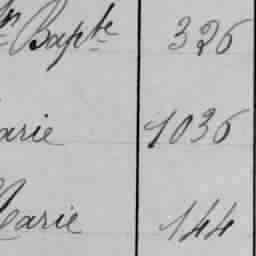 Jn Bapte 326
arie 1036
Marie 144